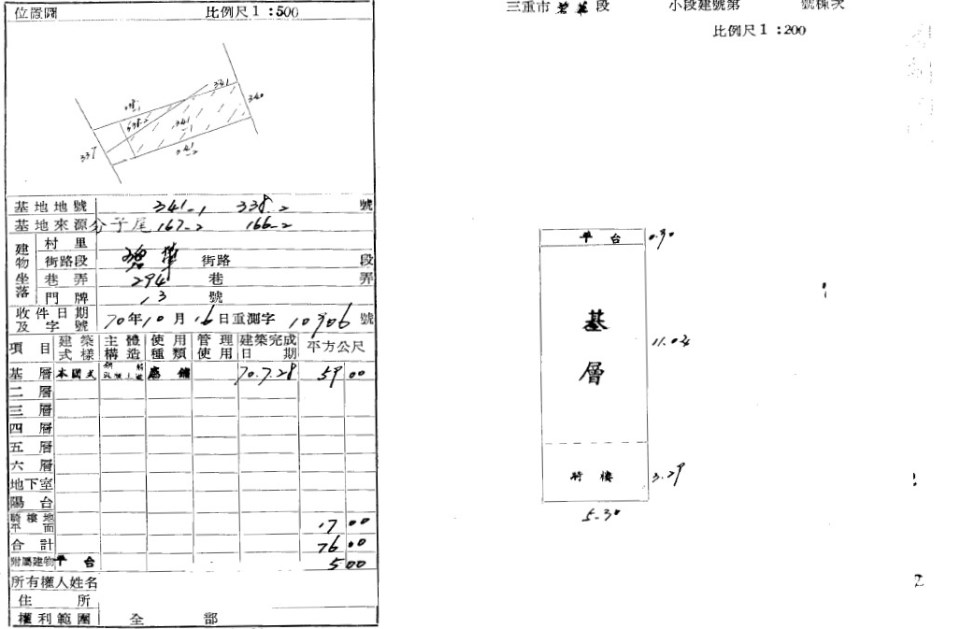 位置圖 比例尺1:500
341
340
338-1
338-2
341-1
337
341-2
基地地號 341-1 338-2 號
基地來源 分子尾 167-2 166-2
建物坐落
村里
街路段 碧華 街路 段
巷弄 294 巷 弄
門牌 13 號
收件日期及字號 70年10月16日重測字 10906 號
項目 建築式樣 主體構造 使用種類 管理使用 建築完成日期 平方公尺
基層 本國式 店舖 70.7.28 59 00
二層
三層
四層
五層
六層
地下室
陽台
騎樓地平面 17 00
合計 76 00
附屬建物 平台 5 00
所有權人姓名
住所
權利範圍 全部
三重市 碧華 段 小段建號第 號棟次
比例尺1:200
平台 0.90
基層
11.02
騎樓 3.29
5.30